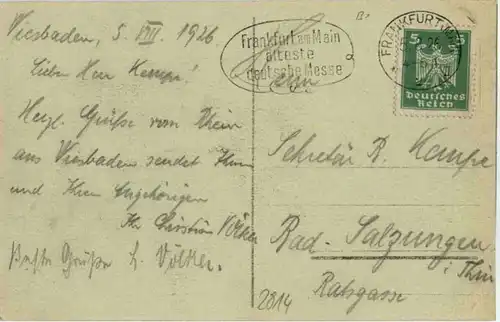 Wiesbaden, 5. VIII. 1926
Lieber Herr Kempe!
Herzl. Grüße vom Rhein
aus Wiesbaden sendet Ihnen
und Ihren Angehörigen
Ihr Christian Völker
Beste Grüße L. Völker.
Frankfurt am Main
älteste
deutsche Messe
FRANKFURT
5
Deutsches
Reich
Herrn
Sekretär R. Kempe
Bad-Salzungen
i. Thür
Ratsgasse
2814